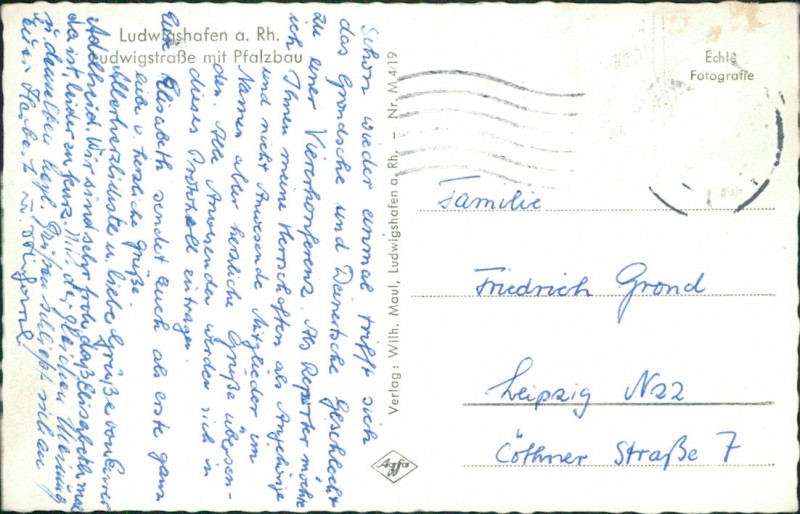 Ludwigshafen a. Rh.
Ludwigstraße mit Pfalzbau
Echte
Fotografie
Verlag: Wilh. Mauf, Ludwigshafen a. Rh. — Nr. M 4/19
Agfa
Schon wieder einmal trifft sich
das Grondsche und Geschlecht
zu einer Viererkonferenz. Als Reporter möchte
ich Ihnen meine Herrschaften als Angehörige
und nicht Anwesende Mitglieder im
Namen aller herzliche Grüße übersen-
den. Alle Anwesenden werden sich in
dieses Protokoll eintragen.
Elisabeth sendet Euch als erste ganz
liebe u. herzliche Grüße.
Allerherzlichste u. liebe Grüße von Eurer
Adelheid. Wir sind sehr froh, daß Elisabeth mal
da ist, leider zu kurz. Mit der gleichen Meinung
u. denselben herzl. Grüßen schließt sich an
Euer
Familie
Friedrich Grond
Leipzig N22
Cöthner Straße 7